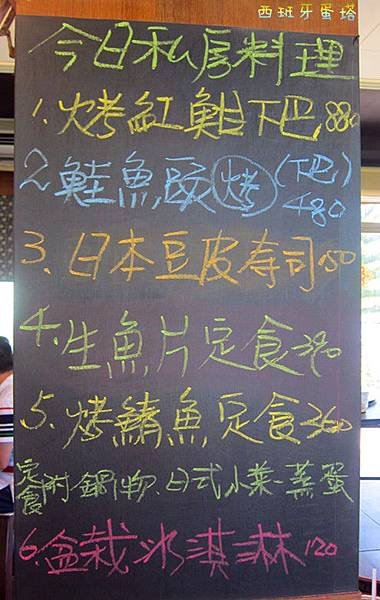 西班牙蛋塔
今日私房料理
1.烤紅魽下巴 880
2.鮭魚頭(烤)(下巴)
480
3.日本豆皮寿司 150
4.生魚片定食 390
5.烤鯖魚定食 360
定食附鍋物、日式小菜、蒸蛋
6.盆栽冰淇淋 120